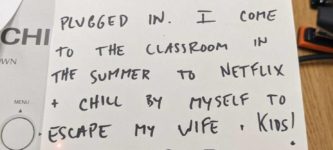 PLUGGED IN. I COME
TO THE CLASSROOM IN
THE SUMMER TO NETFLIX
+ CHILL BY MYSELF TO
ESCAPE MY WIFE + KIDS!
CHI
OWN
MENU